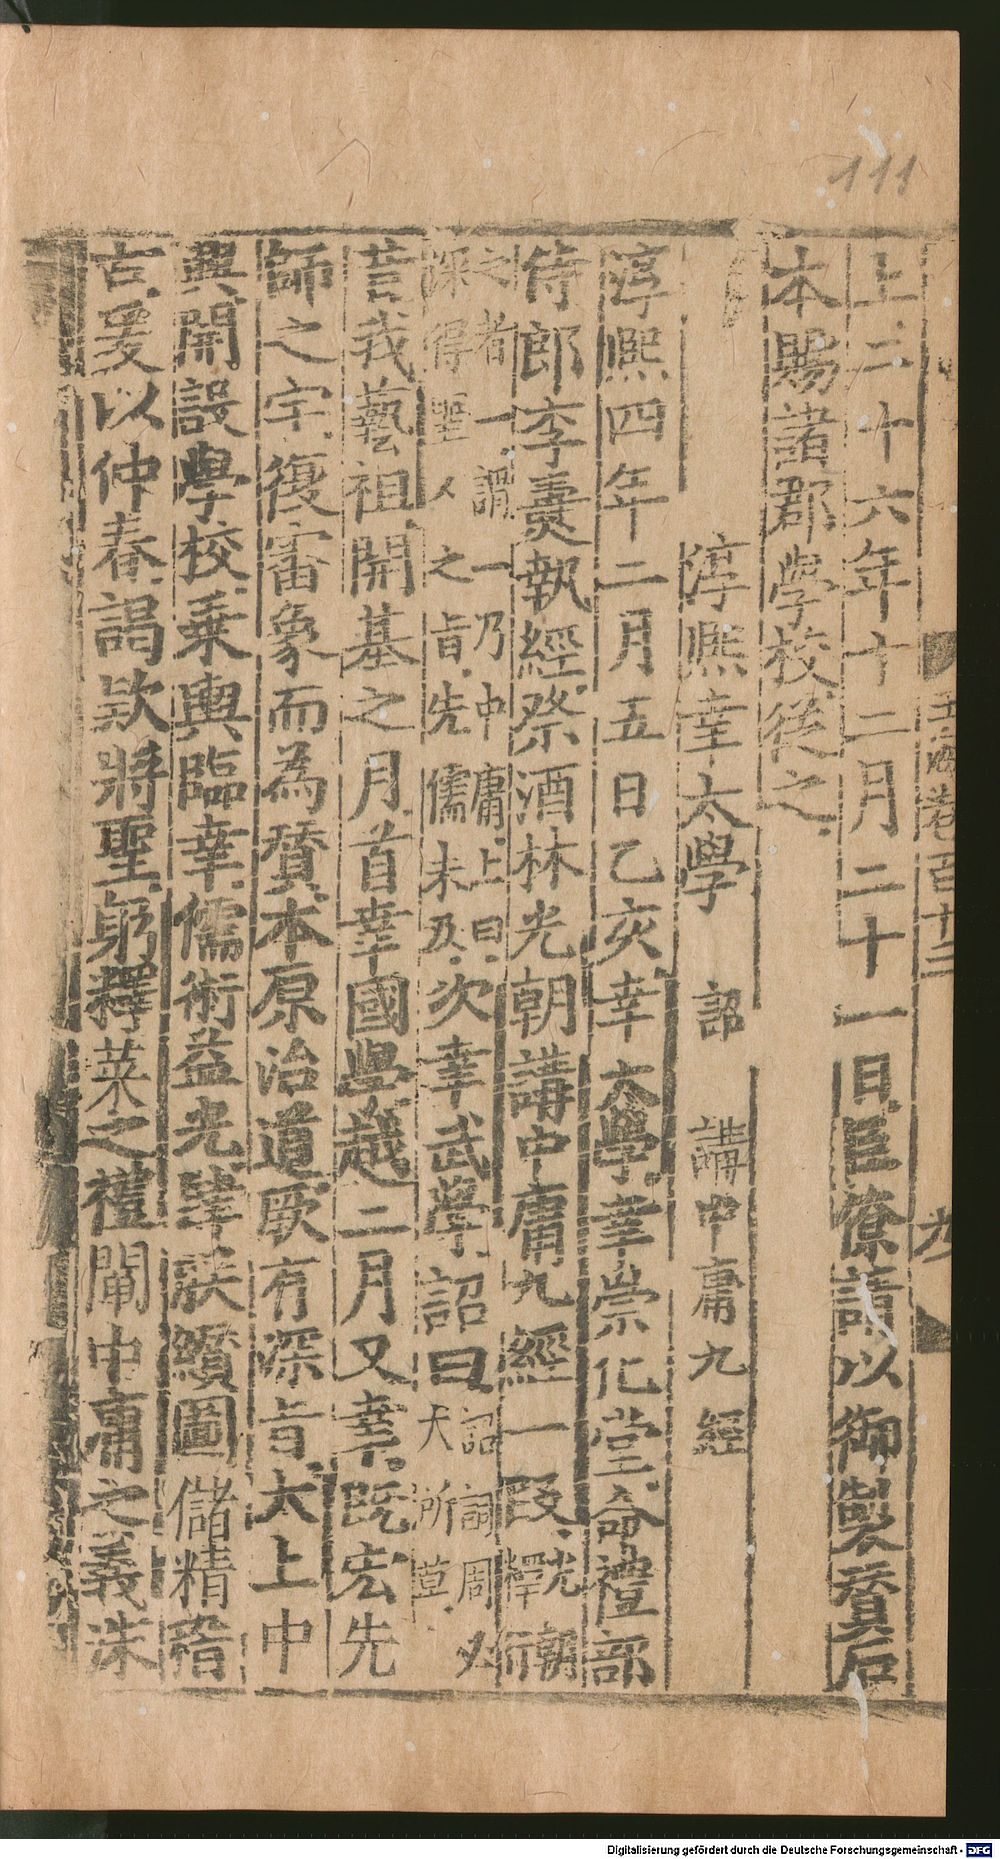 111
玉海卷百十三
上二十六年十二月二十一日臣僚請以御製賛石
本賜諸郡學校從之
淳熙幸太學 詔 講中庸九經
淳熙四年二月五日乙亥幸太學幸崇化堂命禮部
侍郎李燾執經祭酒林光朝講中庸九經一段光朝釋所
之者一謂一乃中庸上曰
深得聖人之旨先儒未及次幸武學詔曰詔詞周必
大所草
昔我藝祖開基之月首幸國學越二月又幸旣宏先
師之宇復審象而為賛本原治道厥有深旨太上中
興開設學校乗輿臨幸儒術益光肆朕纘圖儲精稽
古爰以仲春謁欵將聖躬釋菜之禮闡中庸之義洙
Digitalisierung gefördert durch die Deutsche Forschungsgemeinschaft - DFG